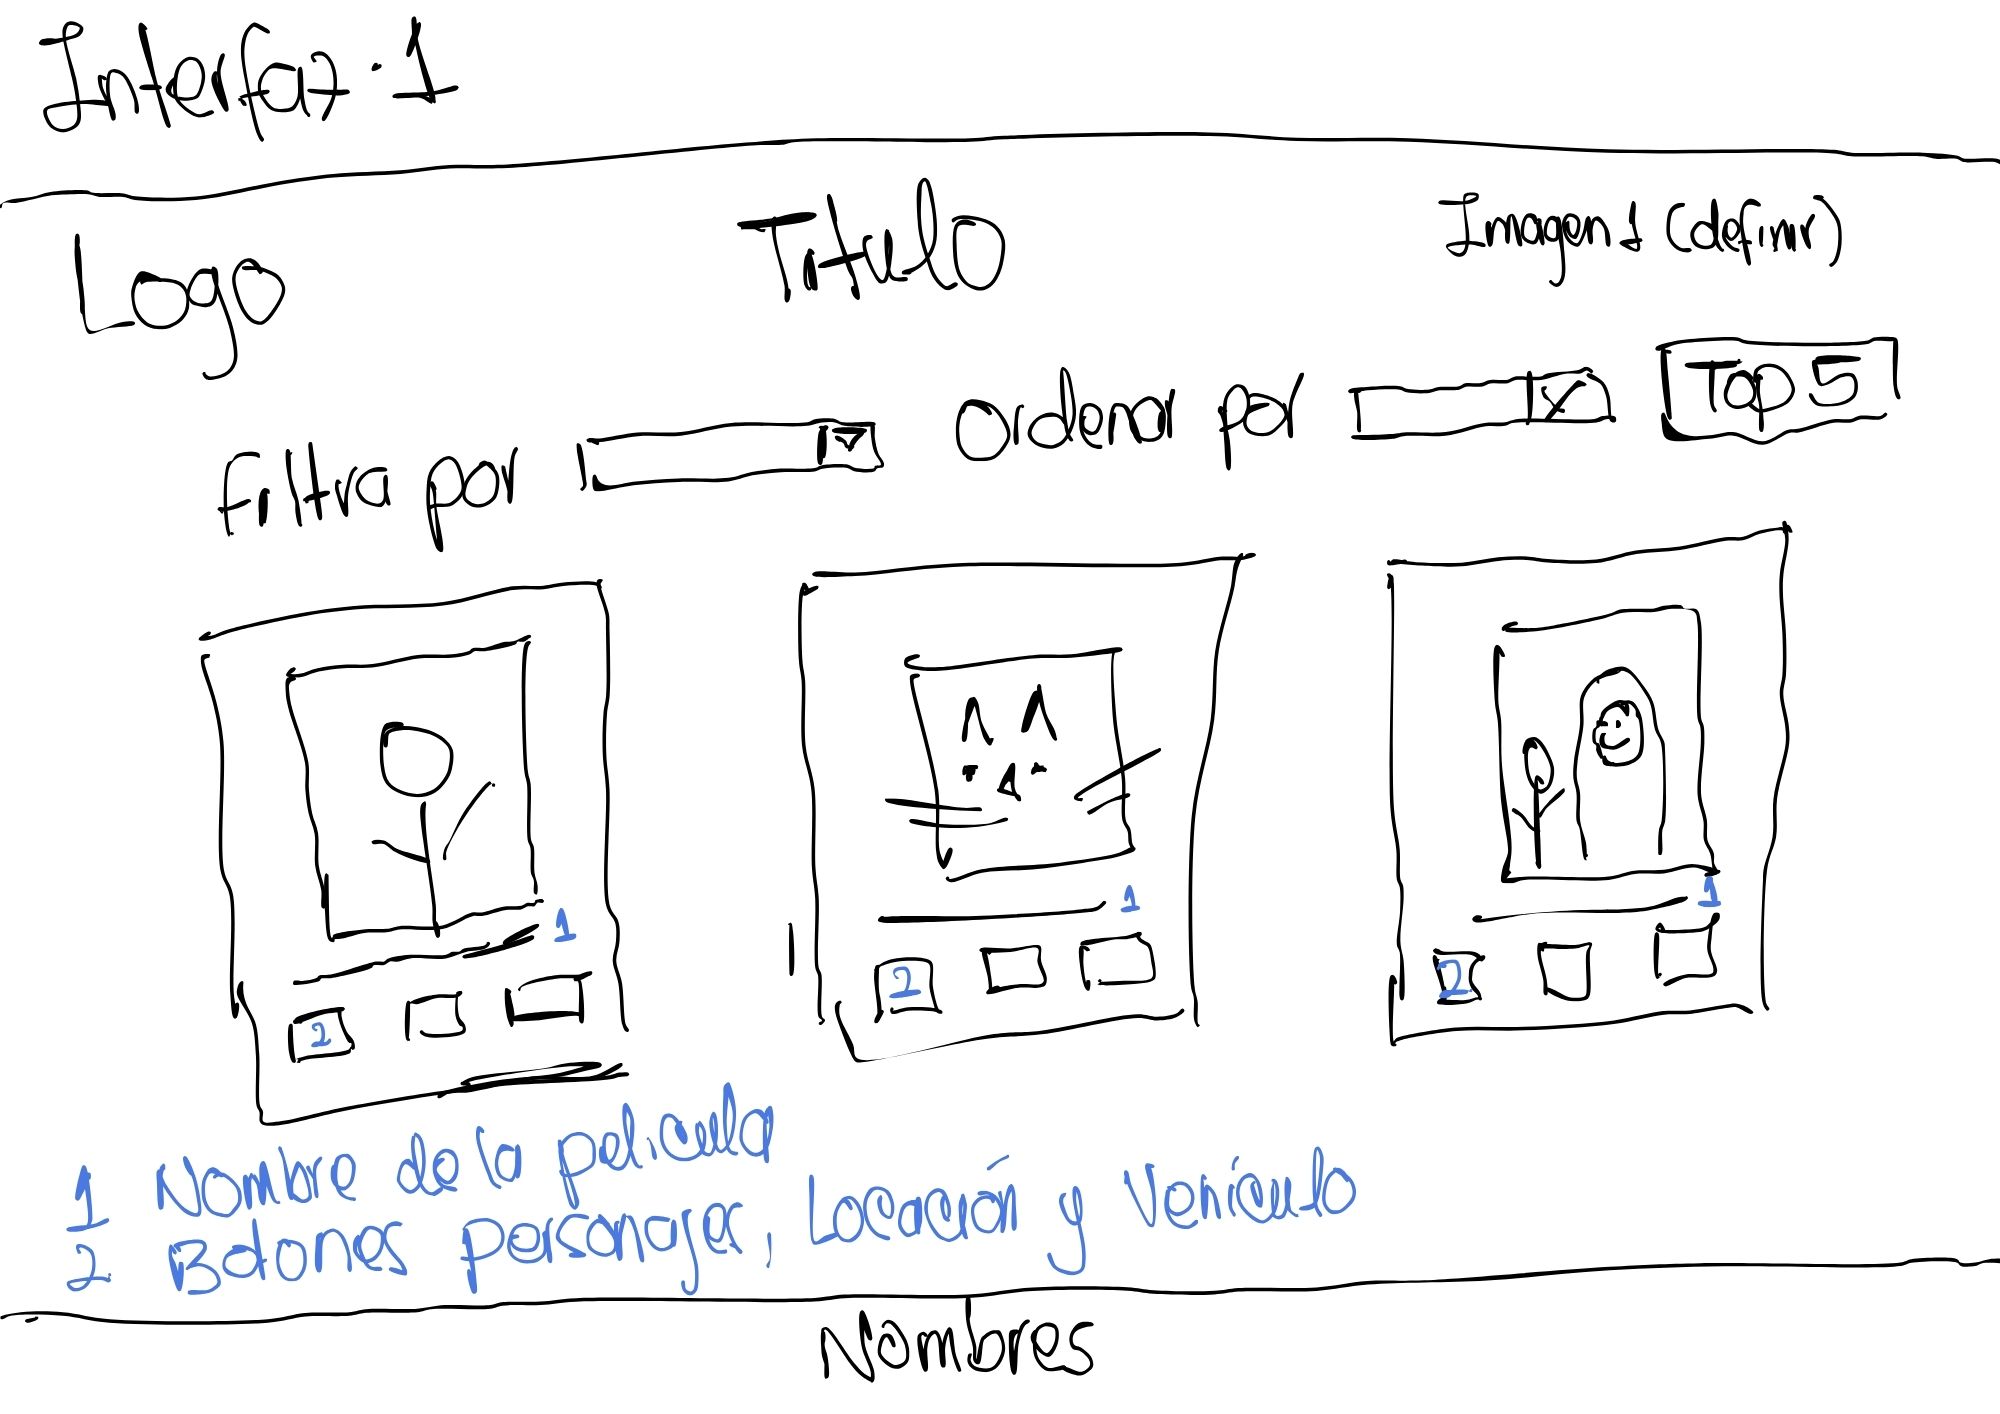 Interfaz. 1
Logo
Titulo
Imagen 1 (definir)
Filtra por
Ordenar por
Top 5
1
1
1
2
2
2
1 Nombre de la pelicula
2 Botones personajes, Locación y Vehículo
Nombres